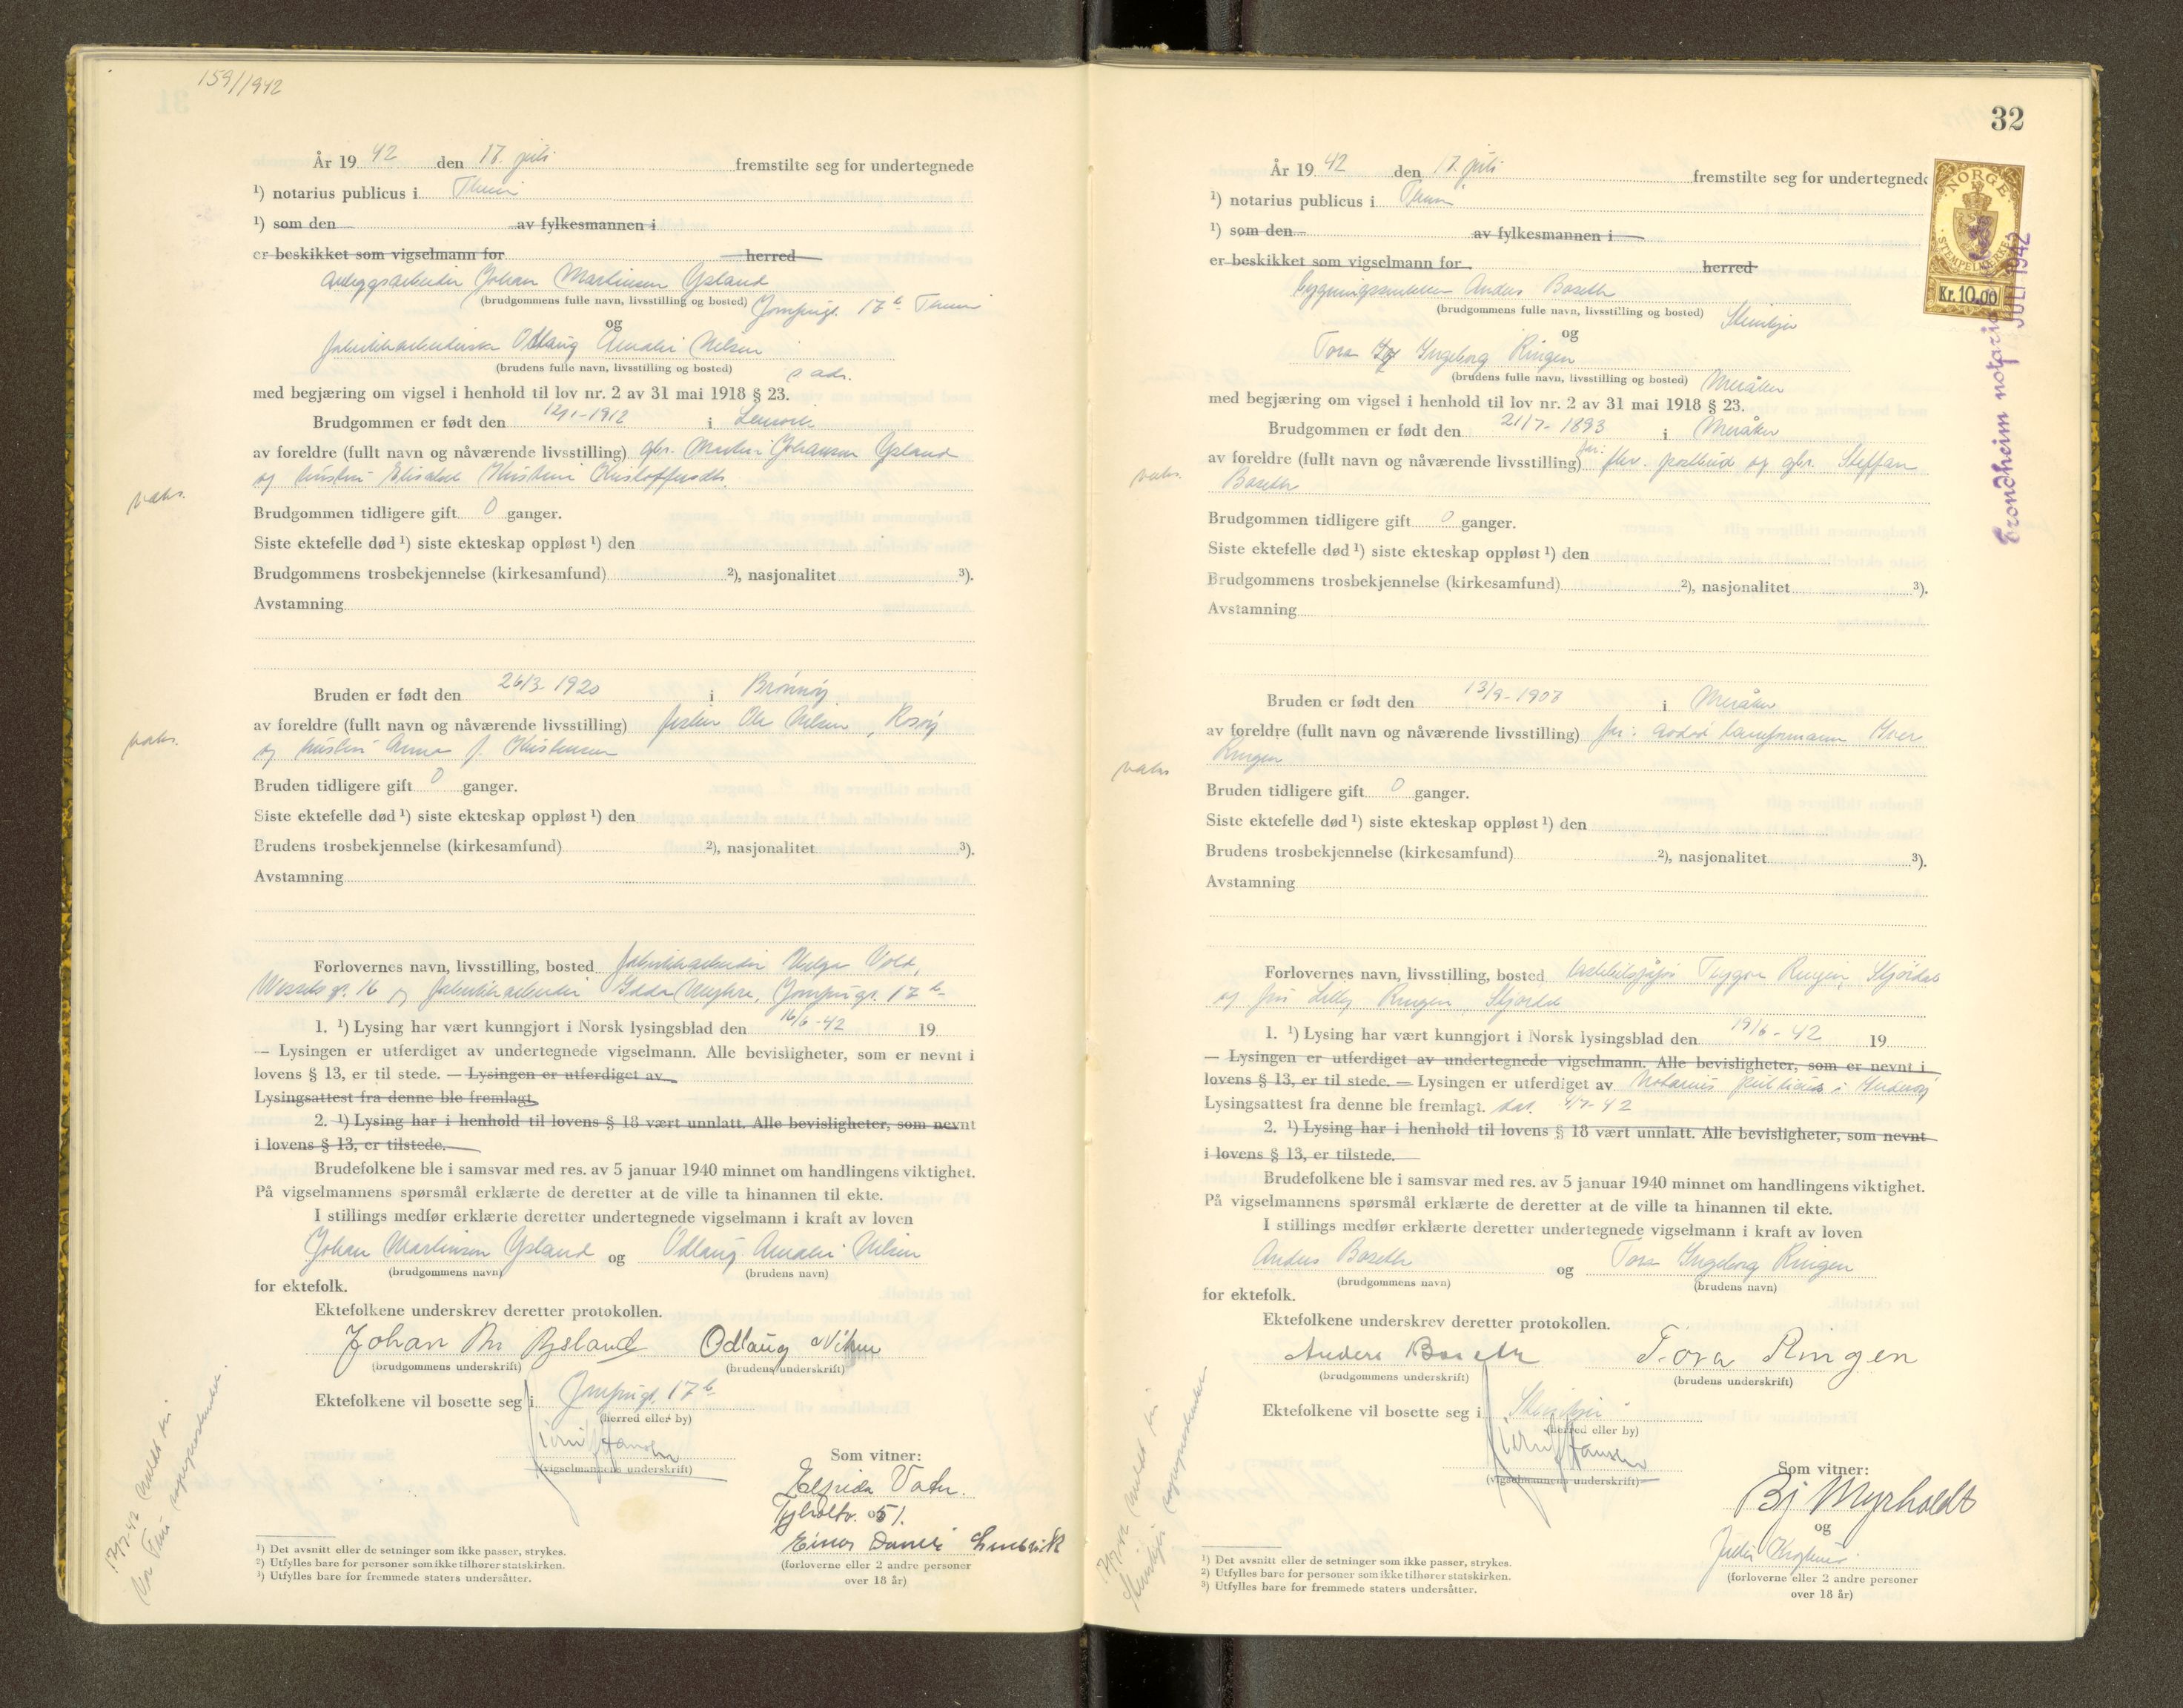 159/1942
År 1942 den 17. juli fremstilte seg for undertegnede
¹) notarius publicus i
¹) som den av fylkesmannen i
er beskikket som vigselmann for herred
Anleggsarbeider Johan Martinsen Ysland
(brudgommens fulle navn, livsstilling og bosted) Jomfrugt. 17 b
og
Odlaug Amalie Nilsen
(brudens fulle navn, livsstilling og bosted) s. adr.
med begjæring om vigsel i henhold til lov nr. 2 av 31 mai 1918 § 23.
Brudgommen er født den 12/1-1912 i
av foreldre (fullt navn og nåværende livsstilling) gbr. Martin Johansen Ysland
og hustru Elisabet Kristine
vaks.
Brudgommen tidligere gift 0 ganger.
Siste ektefelle død ¹) siste ekteskap oppløst ¹) den
Brudgommens trosbekjennelse (kirkesamfund) ²), nasjonalitet ³).
Avstamning
Bruden er født den 26/3-1920 i Brønnøy
av foreldre (fullt navn og nåværende livsstilling) fisker Ole Nilsen,
og hustru Anna J. Kristensen
vaks.
Bruden tidligere gift 0 ganger.
Siste ektefelle død ¹) siste ekteskap oppløst ¹) den
Brudens trosbekjennelse (kirkesamfund) ²), nasjonalitet ³).
Avstamning
Forlovernes navn, livsstilling, bosted fabrikkarbeider Helge Vold,
16 og fabrikkarbeider Jomfrugt. 17 b
1. ¹) Lysing har vært kunngjort i Norsk lysingsblad den 16/6-42 19
— Lysingen er utferdiget av undertegnede vigselmann. Alle bevisligheter, som er nevnt i
lovens § 13, er til stede. — Lysingen er utferdiget av
Lysingsattest fra denne ble fremlagt.
2. ¹) Lysing har i henhold til lovens § 18 vært unnlatt. Alle bevisligheter, som nevnt
i lovens § 13, er tilstede.
Brudefolkene ble i samsvar med res. av 5 januar 1940 minnet om handlingens viktighet.
På vigselmannens spørsmål erklærte de deretter at de ville ta hinannen til ekte.
I stillings medfør erklærte deretter undertegnede vigselmann i kraft av loven
Johan Martinsen Ysland og Odlaug Amalie Nilsen
(brudgommens navn) (brudens navn)
for ektefolk.
Ektefolkene underskrev deretter protokollen.
Johan M Ysland Odlaug Nilsen
(brudgommens underskrift) (brudens underskrift)
Ektefolkene vil bosette seg i Jomfrugt. 17 b
(herred eller by)
(vigselmannens underskrift)
Som vitner:
Elfrida
og 51.
Einar
(forloverne eller 2 andre personer
over 18 år)
17/7-42 meldt til
¹) Det avsnitt eller de setninger som ikke passer, strykes.
²) Utfylles bare for personer som ikke tilhører statskirken.
³) Utfylles bare for fremmede staters undersåtter.
32
NORGE
STEMPELMERKE
Kr. 10.00
Trondheim notarie
JULI 1942
År 1942 den 17. juli fremstilte seg for undertegnede
¹) notarius publicus i
¹) som den av fylkesmannen i
er beskikket som vigselmann for herred
Anders Baseth
(brudgommens fulle navn, livsstilling og bosted) Steinkjer
og
Tora Ingeborg Ringen
(brudens fulle navn, livsstilling og bosted) Meråker
med begjæring om vigsel i henhold til lov nr. 2 av 31 mai 1918 § 23.
Brudgommen er født den 21/7-1893 i Meråker
av foreldre (fullt navn og nåværende livsstilling) far: postbud og gbr. Steffen
Baseth
vaks.
Brudgommen tidligere gift 0 ganger.
Siste ektefelle død ¹) siste ekteskap oppløst ¹) den
Brudgommens trosbekjennelse (kirkesamfund) ²), nasjonalitet ³).
Avstamning
Bruden er født den 13/9-1908 i Meråker
av foreldre (fullt navn og nåværende livsstilling) far: avdød Iver
Ringen
vaks
Bruden tidligere gift 0 ganger.
Siste ektefelle død ¹) siste ekteskap oppløst ¹) den
Brudens trosbekjennelse (kirkesamfund) ²), nasjonalitet ³).
Avstamning
Forlovernes navn, livsstilling, bosted Trygve Ringen, Stjørdal
og fru Lilly Ringen, Stjørdal
1. ¹) Lysing har vært kunngjort i Norsk lysingsblad den 19/6-42 19
— Lysingen er utferdiget av undertegnede vigselmann. Alle bevisligheter, som er nevnt i
lovens § 13, er til stede. — Lysingen er utferdiget av notarius publicus i
Lysingsattest fra denne ble fremlagt. dat. 4/7-42
2. ¹) Lysing har i henhold til lovens § 18 vært unnlatt. Alle bevisligheter, som nevnt
i lovens § 13, er tilstede.
Brudefolkene ble i samsvar med res. av 5 januar 1940 minnet om handlingens viktighet.
På vigselmannens spørsmål erklærte de deretter at de ville ta hinannen til ekte.
I stillings medfør erklærte deretter undertegnede vigselmann i kraft av loven
Anders Baseth og Tora Ingeborg Ringen
(brudgommens navn) (brudens navn)
for ektefolk.
Ektefolkene underskrev deretter protokollen.
Anders Baseth Tora Ringen
(brudgommens underskrift) (brudens underskrift)
Ektefolkene vil bosette seg i Steinkjer
(herred eller by)
(vigselmannens underskrift)
Som vitner:
Bj Myrholdt
og
(forloverne eller 2 andre personer
over 18 år)
17/7-42 meldt til
Steinkjer
¹) Det avsnitt eller de setninger som ikke passer, strykes.
²) Utfylles bare for personer som ikke tilhører statskirken.
³) Utfylles bare for fremmede staters undersåtter.